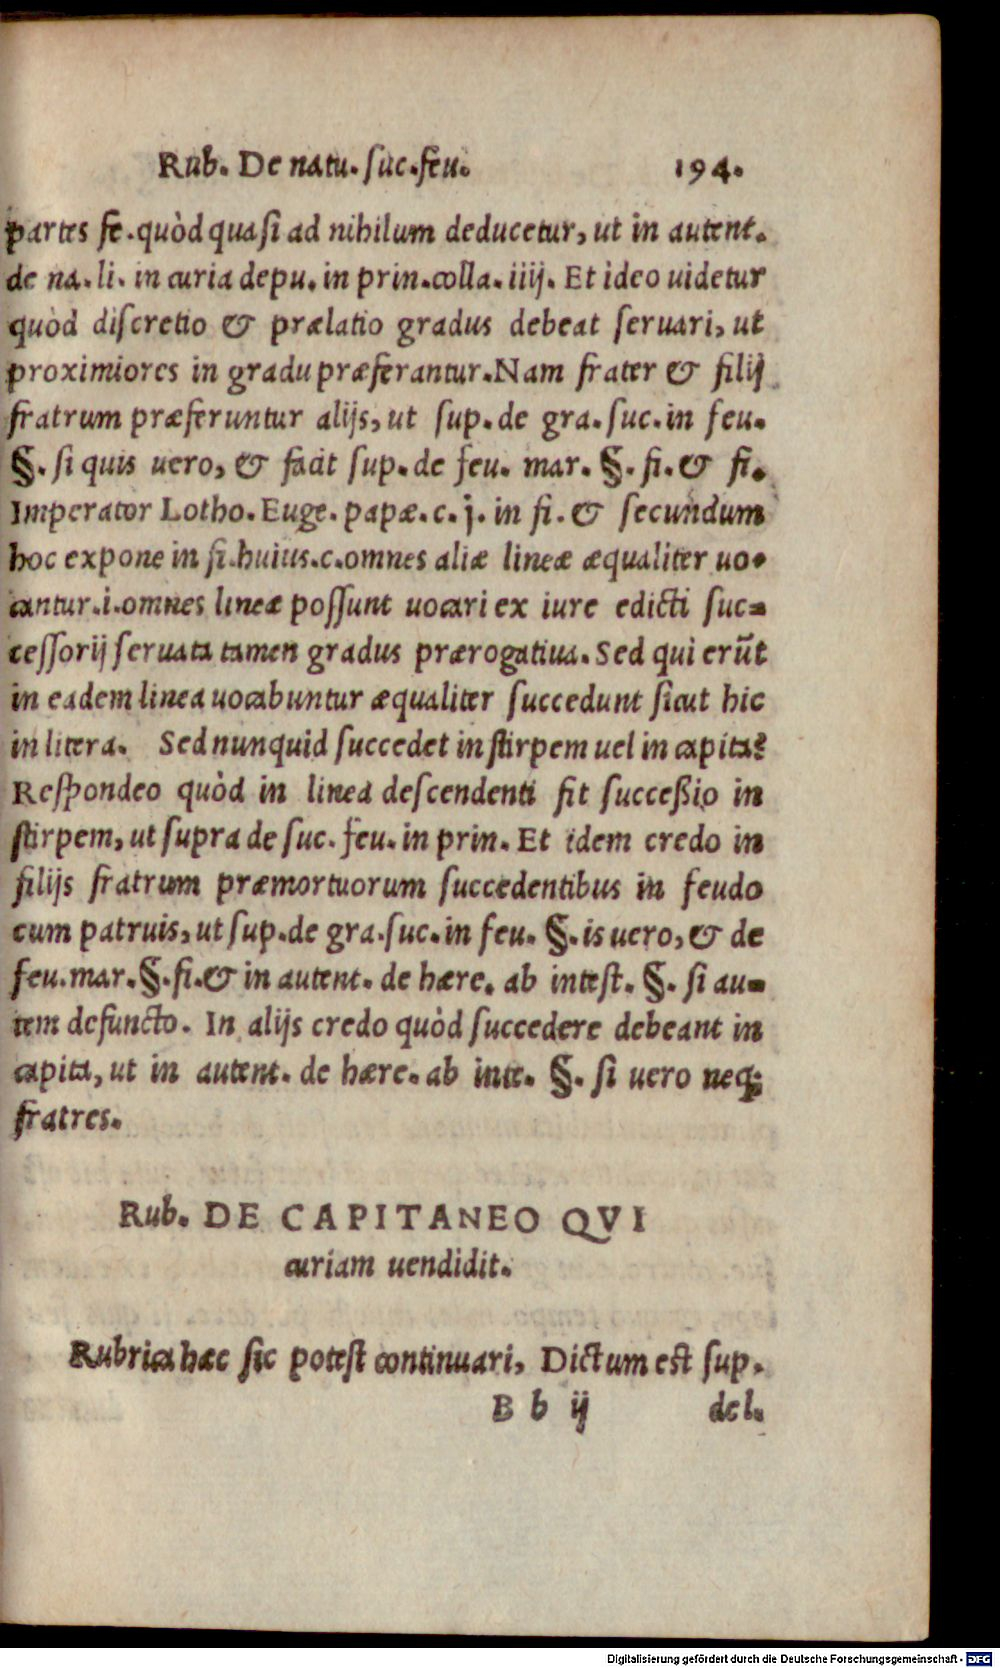 Rub. De natu. suc. feu. 194.
partes se. quòd quasi ad nihilum deducetur, ut in autent.
de na. li. in curia depu. in prin. colla. iiij. Et ideo uidetur
quòd discretio & prælatio gradus debeat seruari, ut
proximiores in gradu præferantur. Nam frater & filij
fratrum præferuntur alijs, ut sup. de gra. suc. in feu.
§. si quis uero, & facit sup. de feu. mar. §. fi. & fi.
Imperator Lotho. Euge. papæ. c. j. in fi. & secundum
hoc expone in fi. huius. c. omnes aliæ lineæ æqualiter uo-
cantur. i. omnes lineæ possunt uocari ex iure edicti suc-
cessorij seruata tamen gradus prærogatiua. Sed qui erūt
in eadem linea uocabuntur æqualiter succedunt sicut hic
in litera. Sed nunquid succedet in stirpem uel in capita?
Respondeo quòd in linea descendenti fit succeßio in
stirpem, ut supra de suc. feu. in prin. Et idem credo in
filijs fratrum præmortuorum succedentibus in feudo
cum patruis, ut sup. de gra. suc. in feu. §. is uero, & de
feu. mar. §. fi. & in autent. de hære. ab intest. §. si au-
tem defuncto. In alijs credo quòd succedere debeant in
capita, ut in autent. de hære. ab inte. §. si uero neq;
fratres.
Rub. DE CAPITANEO QVI
curiam uendidit.
Rubrica hæc sic potest continuari, Dictum est sup.
B b ij del.
Digitalisierung gefördert durch die Deutsche Forschungsgemeinschaft - DFG